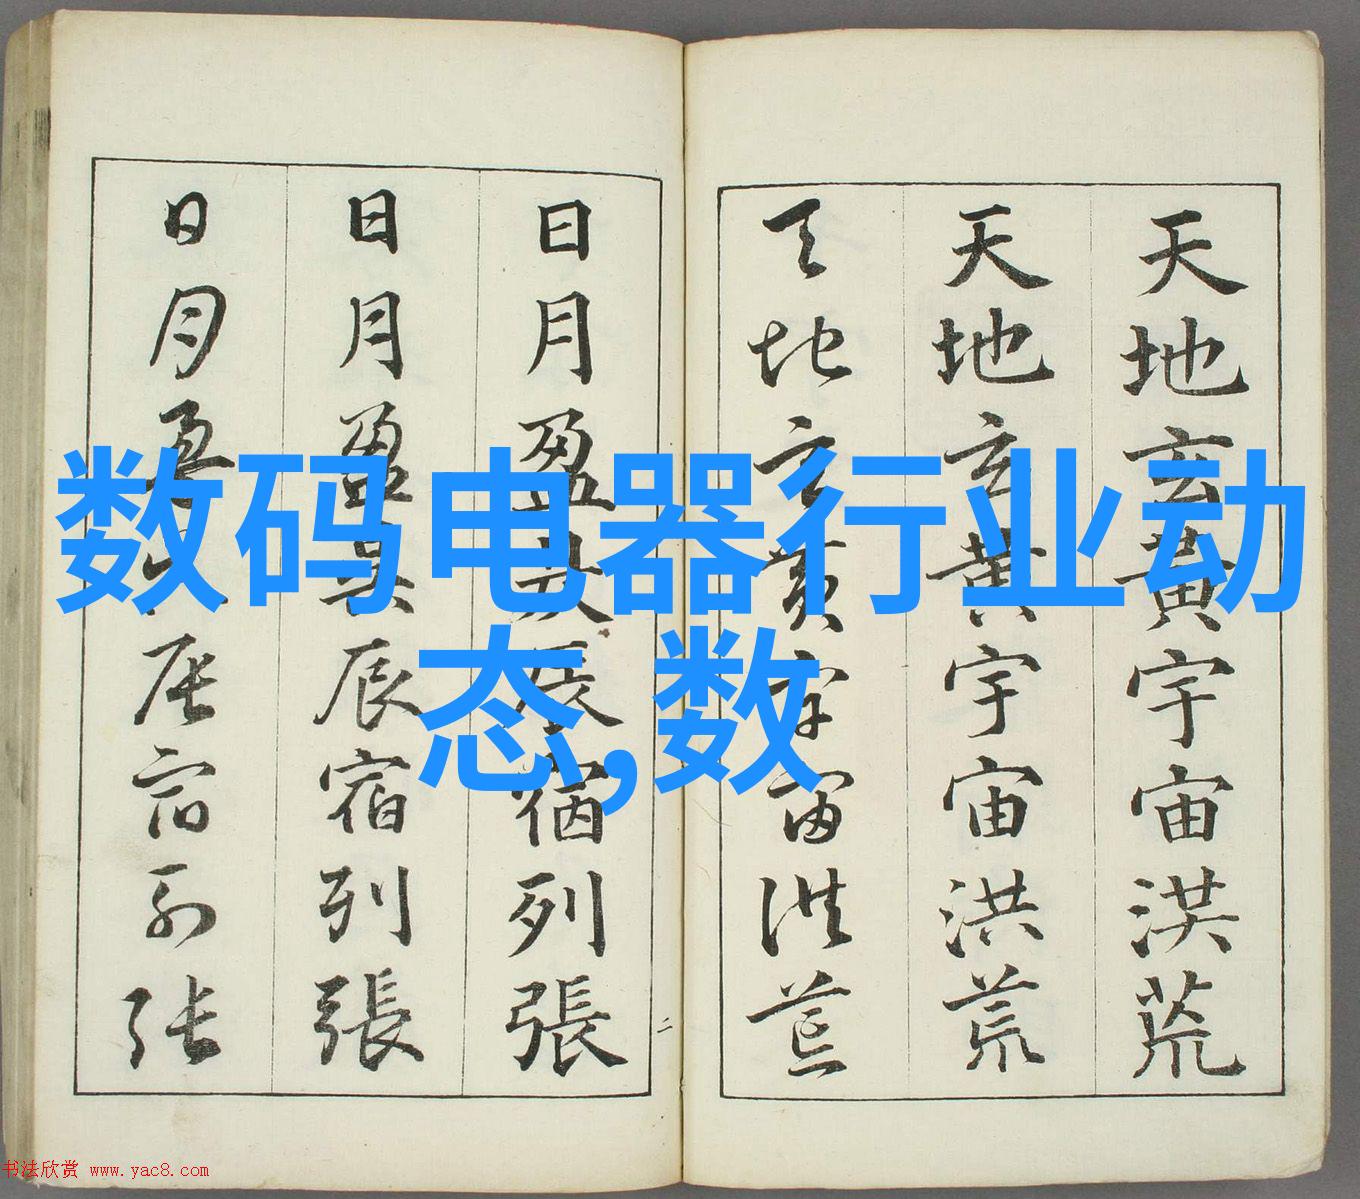 天地玄黃宇宙洪荒
天地玄黃宇宙洪荒
天地玄黃宇宙洪荒
二
日月盈昃辰宿列張
日月盈昃辰宿列張
日月盈昃辰宿列張
数码电器行业动
态,数
书法欣赏 www.yac8.com